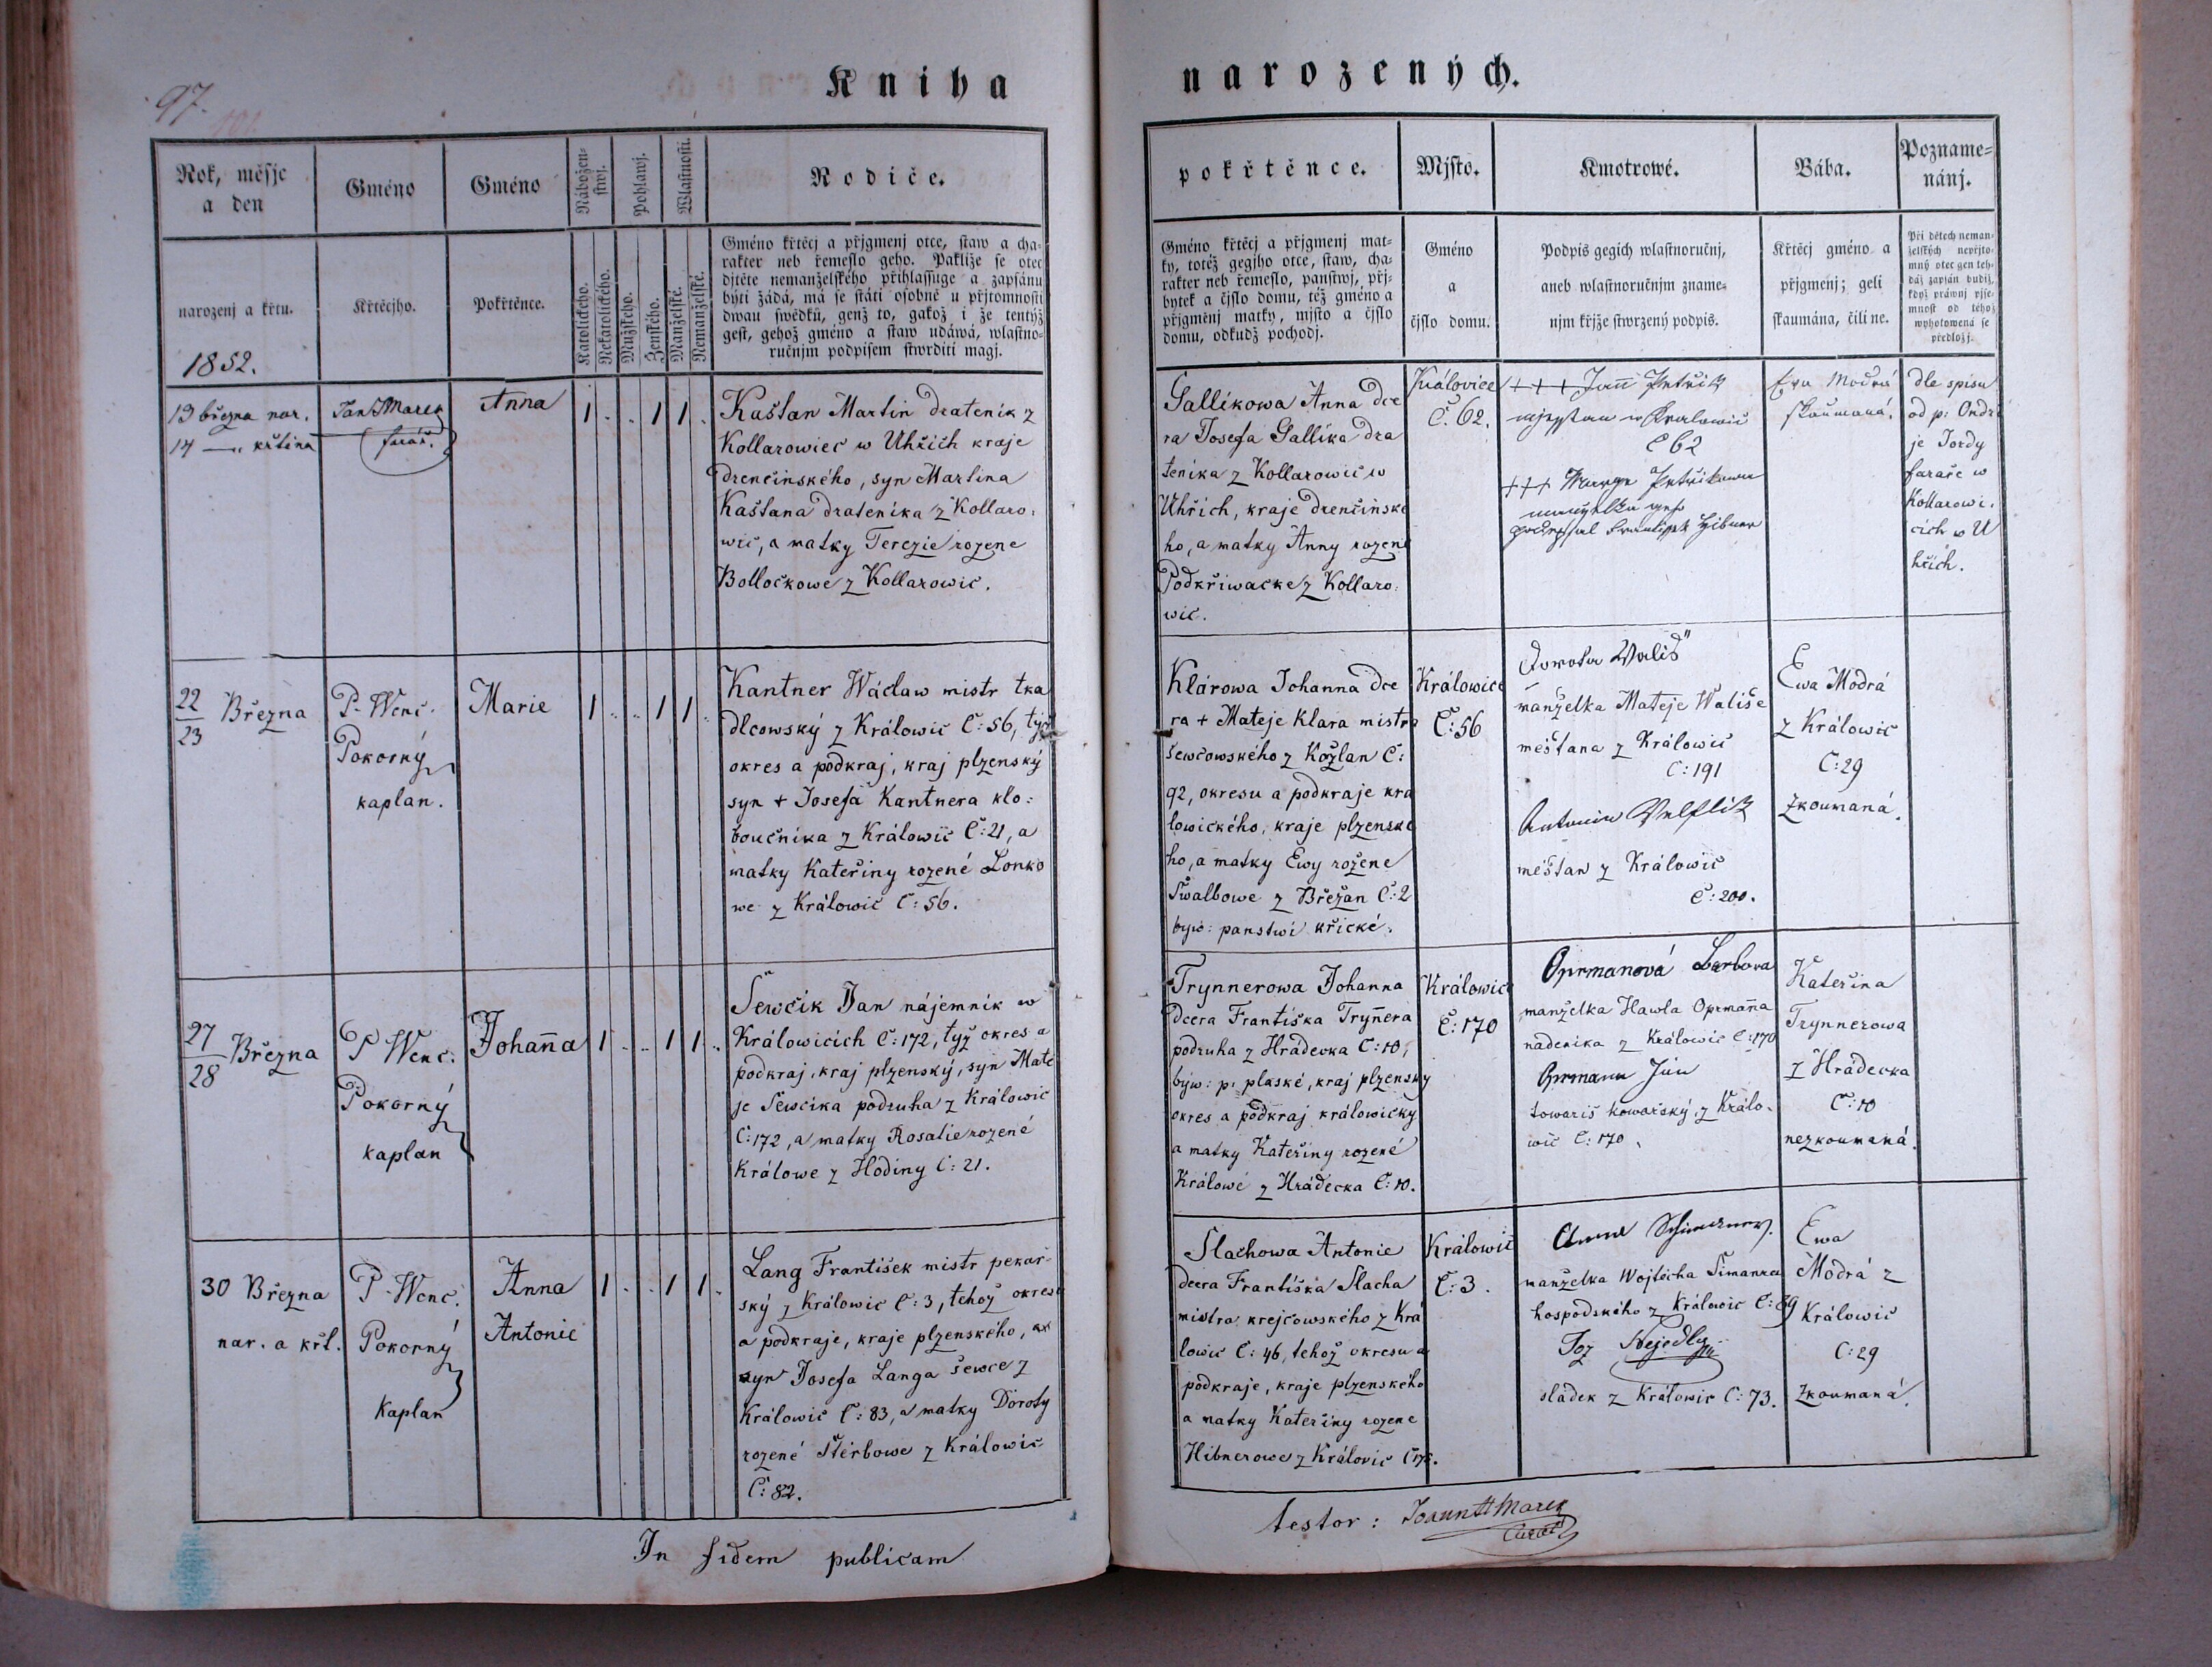 97.
Kniha
Rok, měsjc
a den
narozenj a křtu.
1852.
Gméno
Křtěcjho.
Gméno
Pokřtěnce.
Nábožen-
stwj.
Pohlawj.
Wlastnosti.
Katolického.
Nekatolického.
Mužského.
Ženského.
Manželské.
Nemanželské.
Rodiče.
Gméno křtěcj a přjgmenj otce, staw a cha-
rakter neb řemeslo geho. Pakliže se otec
djtěte nemanželského přihlassuge a zapsánu
býti žádá, má se státi osobně u přjtomnosti
dwau swědků, genž to, gakož i že tentýž
gest, gehož gméno a staw udáwá, wlastno-
ručnjm podpisem stwrditi magj.
13 března nar.
14 — " křtina
Jan Marek
farář.
Anna
1 . . 1 1 .
Kaštan Martin dratenik z
Kollarowiec w Uhřich kraje
drenčinského, syn Martina
Kaštana dratenika z Kollaro:
wic, a matky Terezie rozene
Bolločkowe z Kollarowic.
22
23
Března
P. Wenc.
Pokorný
kaplan.
Marie
1 . . 1 1 .
Kantner Wáclaw mistr tka
dlcowský z Králowic Č: 56, týž
okres a podkraj, kraj plzenský
syn + Josefa Kantnera klo:
boučnika z Králowic Č: 21, a
matky Kateřiny rozené Lonko
we z Králowic Č: 56.
27
28
Března
P Wenc.
Pokorný
kaplan
Johana
1 . . 1 1 .
Šewčik Jan nájemnik w
Králowicich Č: 172, týž okres a
podkraj, kraj plzenský, syn Mate
je Šewčika podruha z Králowic
Č: 172, a matky Rosalie rozené
Králowe z Hodiny Č: 21.
30 Března
nar. a křt.
P. Wenc.
Pokorný
Kaplan
Anna
Antonie
1 . . 1 1 .
Lang František mistr pekař-
ský z Králowic Č: 3, tehož okresu
a podkraje, kraje plzenského,
syn Josefa Langa šewce z
Králowic Č: 83, a matky Doroty
rozené Štěrbowe z Králowic
Č: 82.
In fidem publicam
narozených.
pokřtěnce.
Gméno křtěcj a přjgmenj mat-
ky, totéž gegjho otce, staw, cha-
rakter neb řemeslo, panstwj, přj-
bytek a čjslo domu, též gméno a
přjgměnj matky, mjsto a čjslo
domu, odkudž pochodj.
Mjsto.
Gméno
a
čjslo domu.
Kmotrowé.
Podpis gegich wlastnoručnj,
aneb wlastnoručnjm zname-
njm křjže stwrzený podpis.
Bába.
Křtěcj gméno a
přjgmenj; geli
skaumána, čili ne.
Pozname-
nánj.
Při dětech neman-
želských nepřjto-
mný otec gen teh-
dáž zapsán budiž,
když práwnj pjse-
mnost od téhož
wyhotowená se
předložj.
Gallikowa Anna dce
ra Josefa Gallika dra
tenika z Kollarowic w
Uhřich, kraje drenčinské
ho, a matky Anny rozené
Podkřiwacke z Kollaro:
wic.
Králowice
Č. 62.
+++ Jan Petřik
w Kralowic
č 62
+++ Petřikowa
manželka geho
podepsal Frantissek Hibner
Ewa Modrá
skaumaná.
dle spisu
od p: Ondře
je Jordy
faraře w
Kollarowi-
cich w U
hřich.
Klárowa Johanna dce
ra + Mateje Klara mistra
šewcowského z Kožlan Č:
92, okresu a podkraje kra
lowického, kraje plzenské
ho, a matky Ewy rožene
Šwalbowe z Břežan Č: 2
býw: panstwi křické.
Králowice
Č: 56
Dorota Wališ
manželka Mateje Wališe
mešťana z Králowic
Č: 191
Antonin Welflik
mešťan z Králowic
č: 200.
Ewa Modrá
z Králowic
Č: 29
Zkoumaná.
Trynnerowa Johanna
dcera Františka Trynera
podruha z Hrádecka Č: 10,
býw: p: plaské, kraj plzenský
okres a podkraj králowický
a matky Kateřiny rozené
Králowé z Hrádecka Č: 10.
Králowic
Č: 170
Oprmanová Barbora
manželka Hawla Oprmana
nadenika z Králowic Č: 170
Oprmann Jan
towariš kowařský z Králo-
wic Č: 170.
Kateřina
Trynnerowa
z Hrádecka
Č: 10
nezkoumaná.
Slachowa Antonie
dcera Františka Slacha
mistra krejčowského z Krá
lowic Č: 46, tehož okresu a
podkraje, kraje plzenského
a matky Kateřiny rozene
Hibnerowe z Králowic
Králowic
Č: 3.
Anna
manželka Wojtěcha Šimanka
hospodského z Králowic Č: 89
Joz Nejedlý
sládek z Králowic Č: 73.
Ewa
Modrá z
Králowic
Č: 29
Zkoumaná.
testor: Joann Marek
Curat